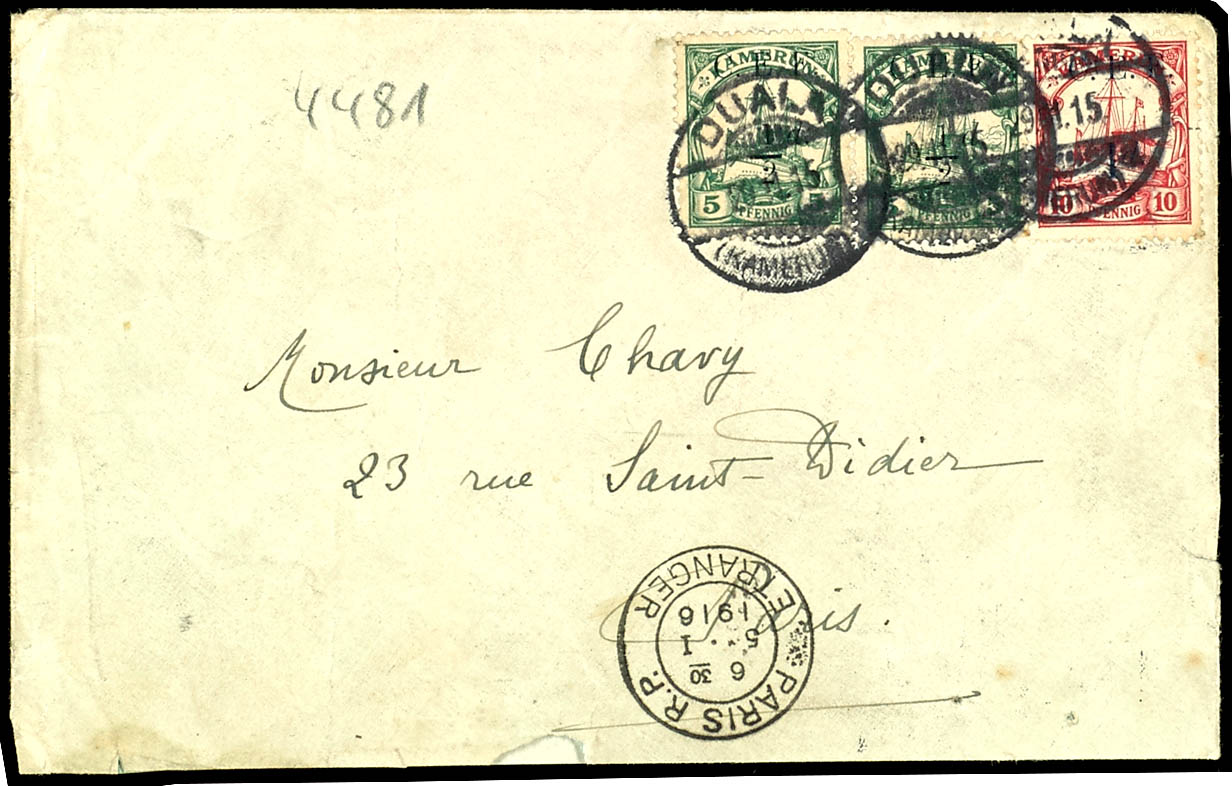 4481
KAMERUN
C.E.F.
1/2 d.
5 PFENNIG 5
KAMERUN
C.E.F.
1/2 d.
PFENNIG
KAMERUN
C.E.F.
1d.
10 PFENNIG 10
DUALA
15
(KAMERUN)
DUALA
29.11.15
29.11.15
Monsieur Chavy
23 rue Saint-Didier
Paris.
PARIS R.P.
ETRANGER
6 30
5 1
1916